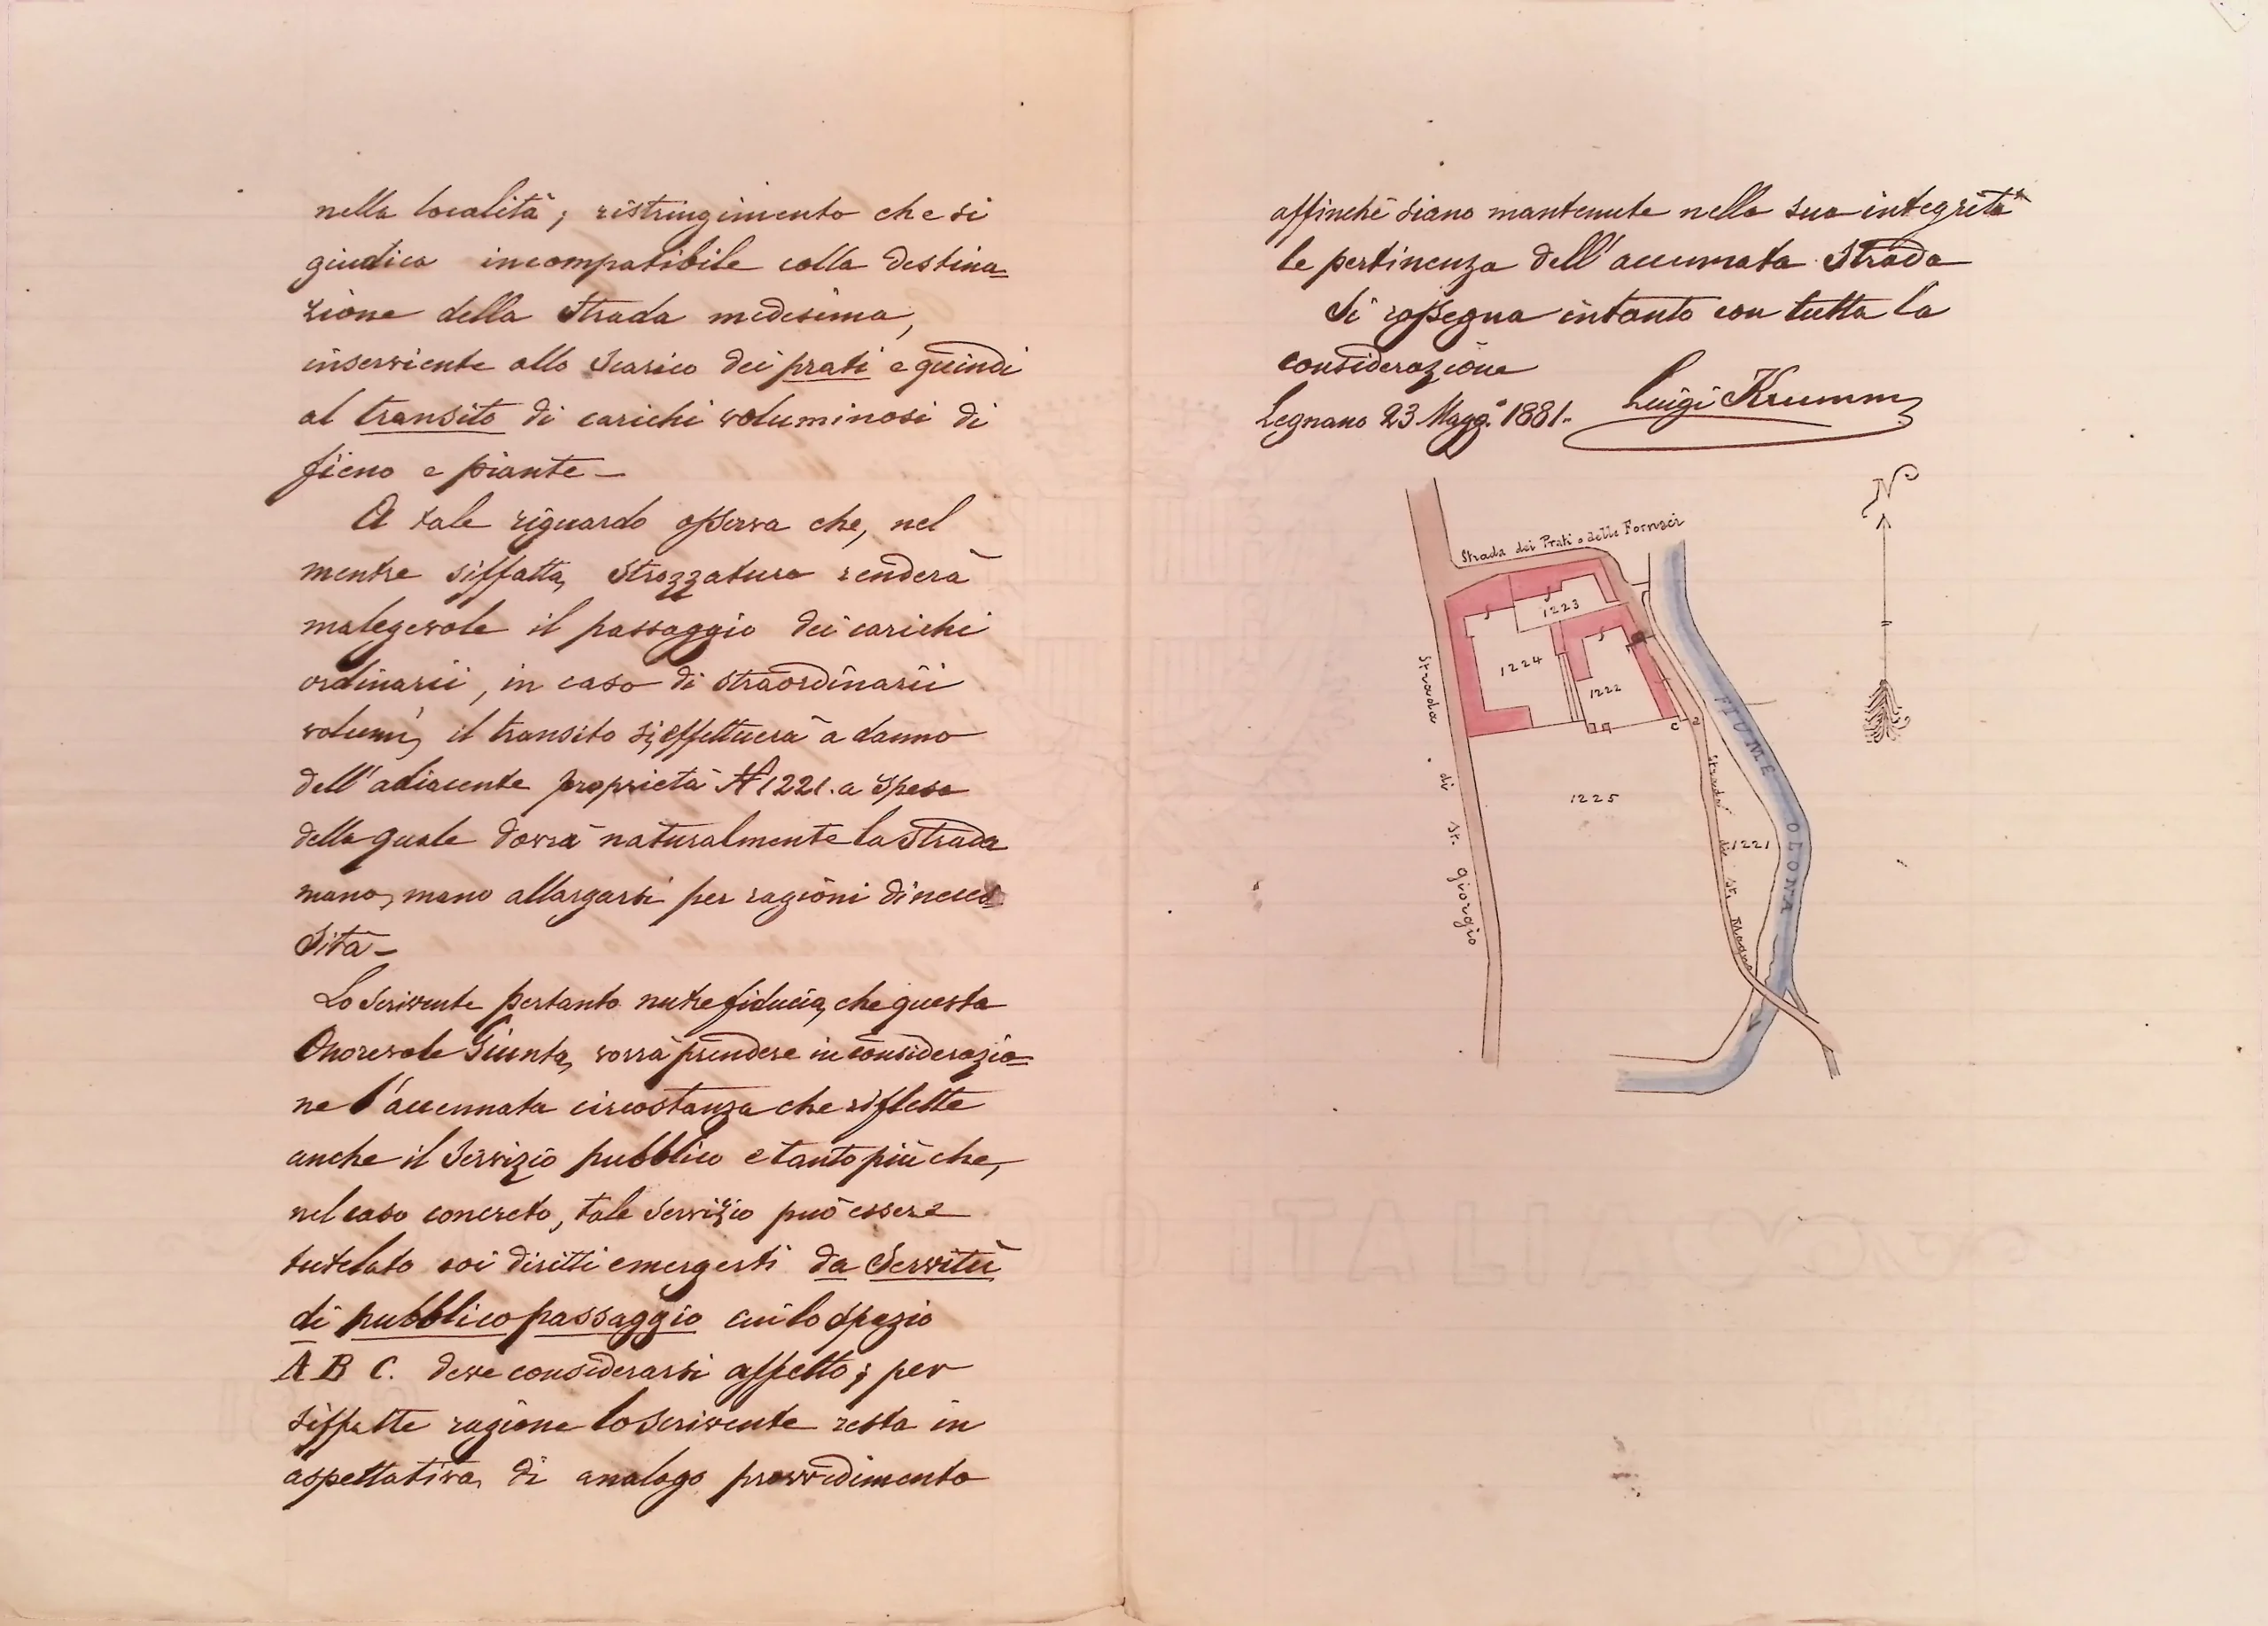 nella località; ristringimento che si
giudica incompatibile colla destina=
zione della Strada medesima,
inserviente allo Scarico dei prati e quindi
al transito di carichi voluminosi di
fieno e piante_
A tale riguardo osserva che, nel
mentre siffatta Strozzatura renderà
malegevole il passaggio dei carichi
ordinarii, in caso di straordinarii
volumi, il transito si effettuerà a danno
dell'adiacente proprietà N 1221. a spese
della quale dovrà naturalmente la Strada
mano, mano allargarsi per ragioni di neces=
sità_
Lo Scrivente pertanto nutre fiducia, che questa
Onorevole Giunta, vorrà prendere in considerazio=
ne l'accennata circostanza che riflette
anche il Servizio pubblico e tanto più che,
nel caso concreto, tale Servizio può essere
tutelato coi diritti emergenti da Servitù
di pubblico passaggio cui lo spazio
A B C. deve considerarsi affetto; per
siffatte ragione lo Scrivente resta in
aspettativa di analogo provvedimento
affinchè siano mantenute nella sua integrità
le pertinenza dell'accennata Strada
Si rassegna intanto con tutta la
considerazione
Luigi Krumm
Legnano 23. Magg.º 1881.
N
Strada dei Prati o delle Fornaci
1223
1224
1222
C
1225
1221
Strada di St. Giorgio
Strada di St. Magno
FIUME OLONA